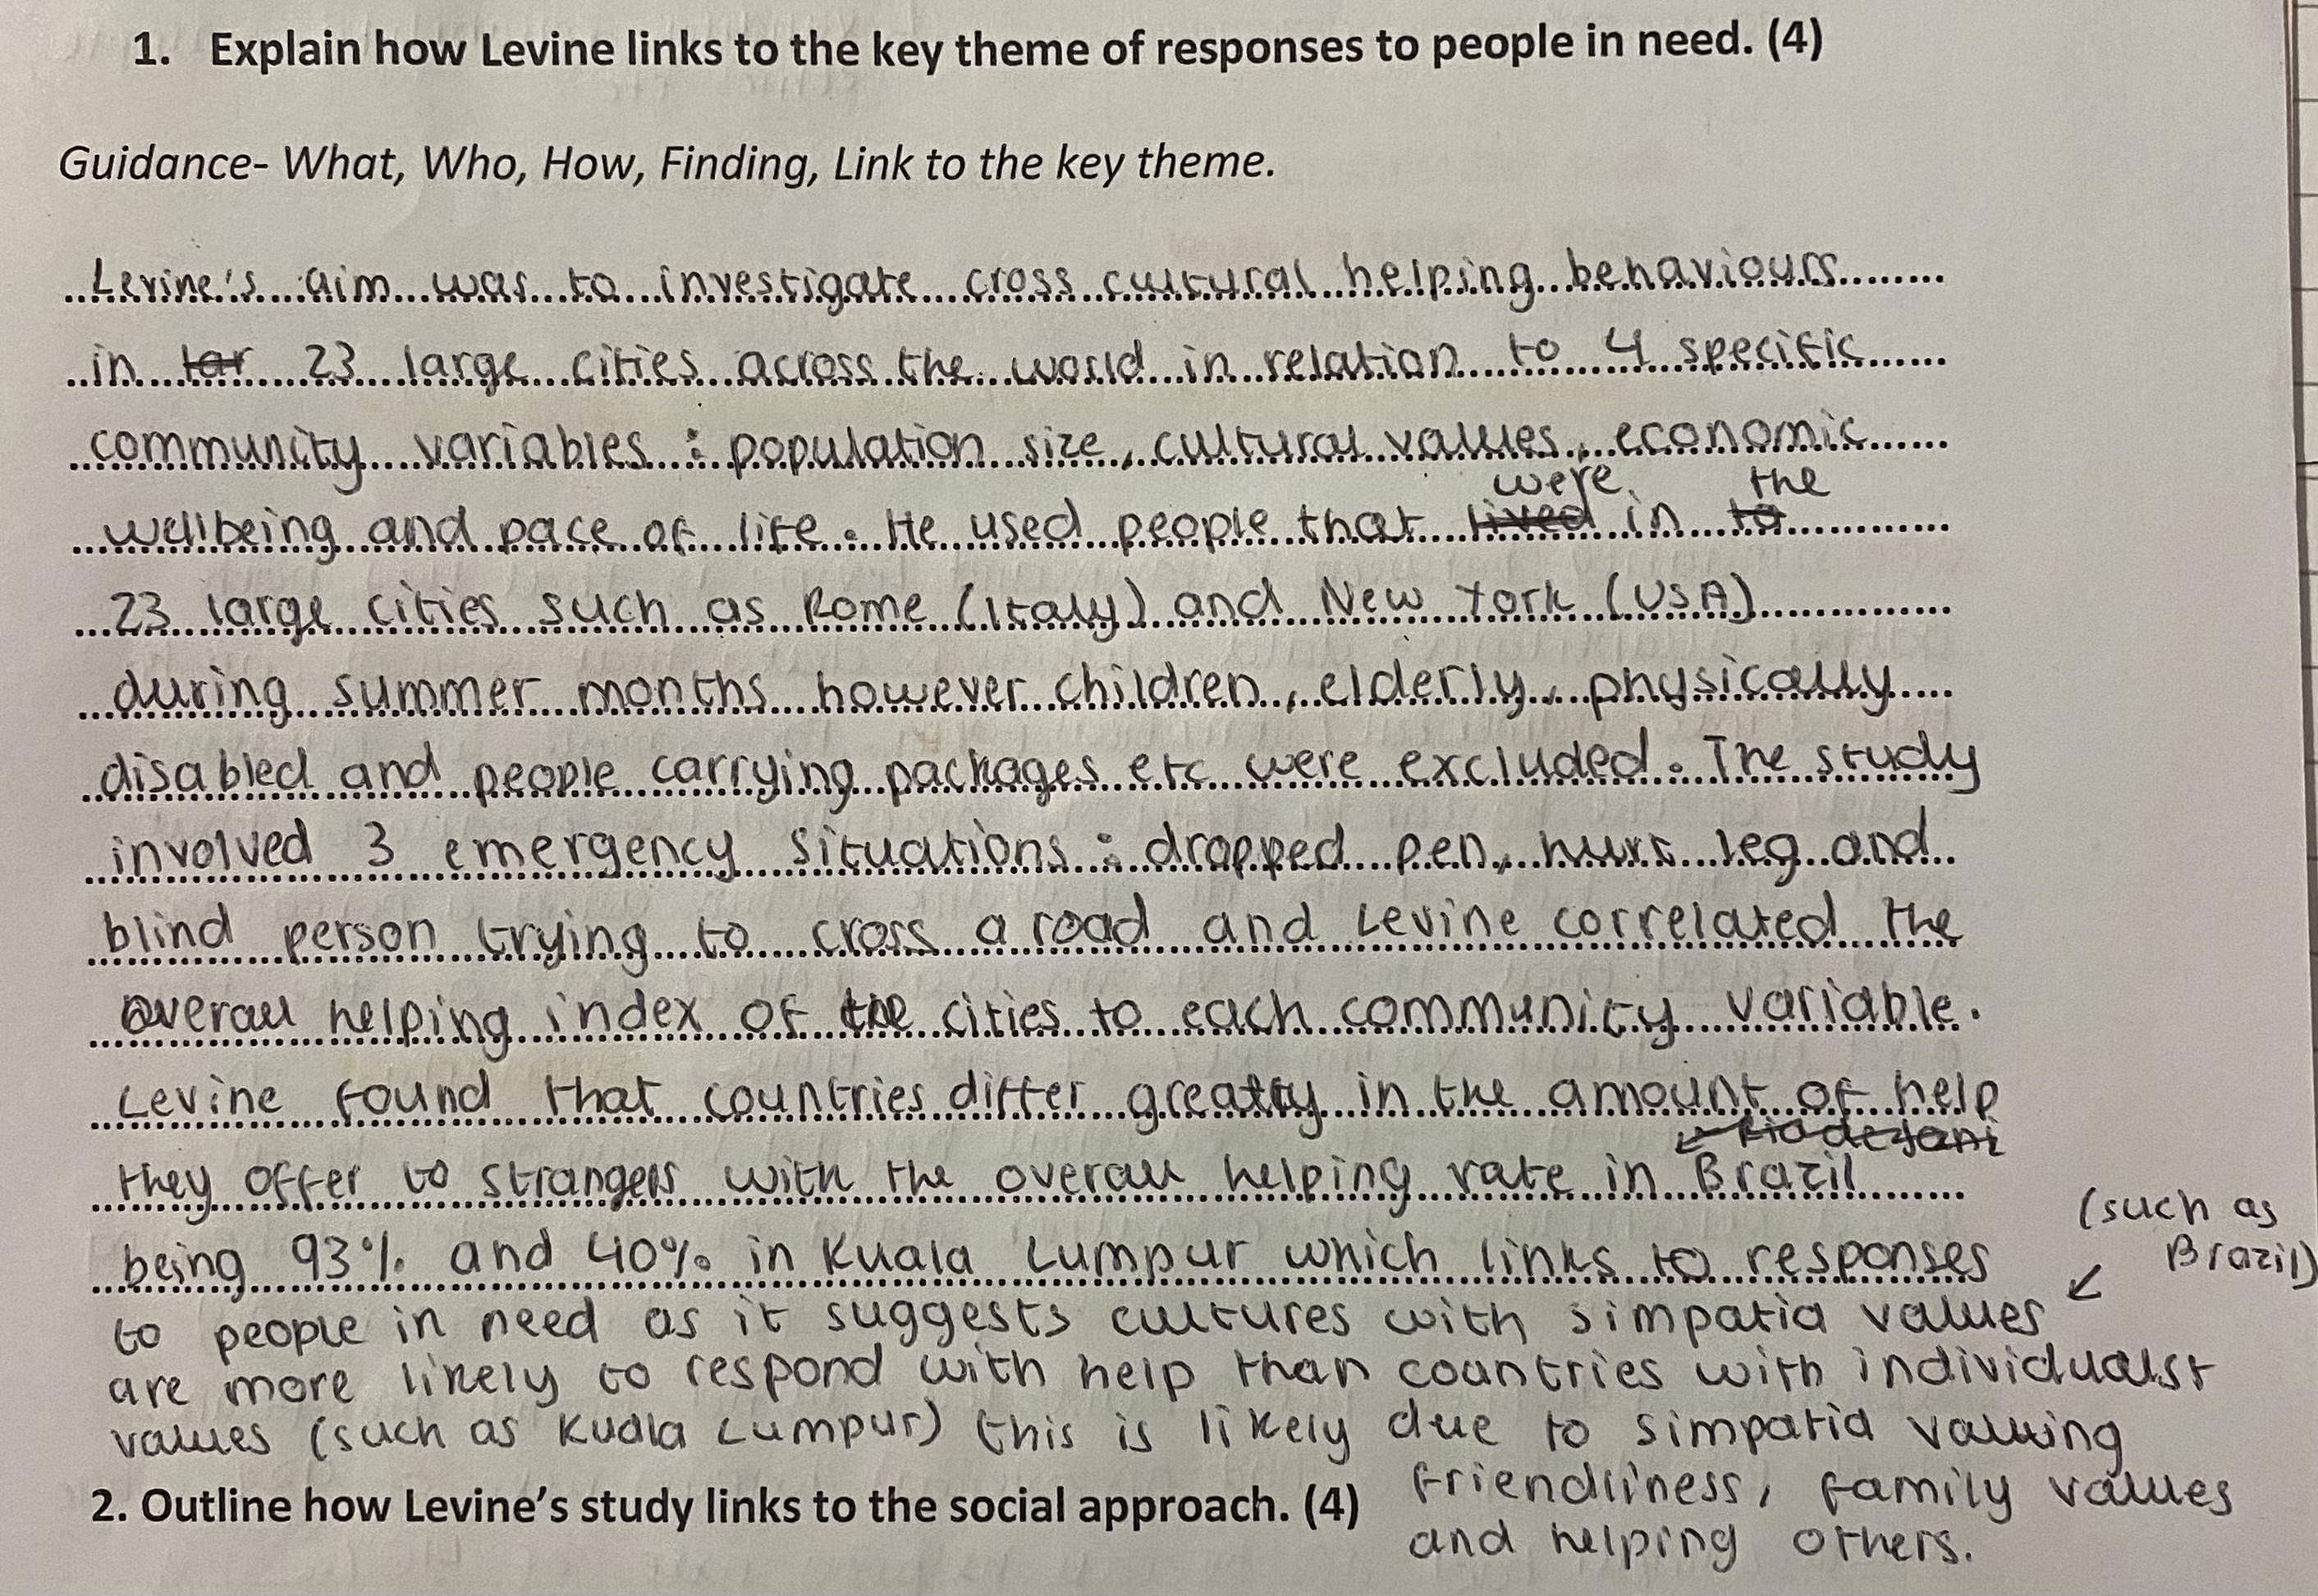 1. Explain how Levine links to the key theme of responses to people in need. (4)
Guidance- What, Who, How, Finding, Link to the key theme.
Levine's aim was to investigate cross cultural helping behaviours
in lar 23 large cities across the world in relation to 4 specific
community variables : population size, cultural values, economic
were the
wellbeing and pace of life. He used people that lived in to
23 large cities such as Rome (Italy) and New York (USA)
during summer months however children, elderly, physically
disabled and people carrying packages etc were excluded. The study
involved 3 emergency situations : dropped pen, hurt leg and
blind person trying to cross a road and Levine correlated the
overall helping index of the cities to each community variable.
Levine found that countries differ greatly in the amount of help
they offer to strangers with the overall helping rate in Brazil
being 93% and 40% in Kuala Lumpur which links to responses
(such as
Brazil)
to people in need as it suggests cultures with simpatia values
are more likely to respond with help than countries with individualst
values (such as Kuala Lumpur) this is likely due to simpatia valuing
friendliness, family values
and helping others.
2. Outline how Levine's study links to the social approach. (4)